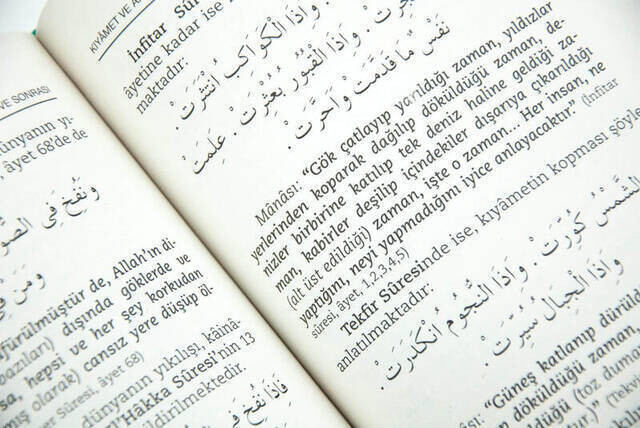 VE SONRASI
dünyanın yı-
âyet 68'de de
وَنُفِخَ فِي الصُّو
وَمَنْ فِي
füfürülmüştür de, Allah'ın di-
bazıları) dışında göklerde ve
sa, hepsi ve her şey korkudan
mış olarak) cansız yere düşüp öl
er Sûresi, âyet 68)
dünyanın yıkılışı, kâina-
el'Hâkka Sûresi'nin 13
bildirilmektedir.
فَإِذَا نُفِخَ فِي
KIYÂMET VE A
Infitar Sûre
âyetine kadar ise
maktadır:
وَاِذَا الْكَوَاكِبُ انْتَثَرَتْ ۙ
فُجِّرَتْ ۙ وَاِذَا الْقُبُورُ بُعْثِرَتْ ۙ عَلِمَتْ
نَفْسٌ مَا قَدَّمَتْ وَاَخَّرَتْ ۙ
Mânâsı: “Gök çatlayıp yarıldığı zaman, yıldızlar
yerlerinden koparak dağılıp döküldüğü zaman, de-
nizler birbirine katılıp tek deniz haline geldiği za-
man, kabirler deşilip içindekiler dışarıya çıkarıldığı
(alt üst edildiği) zaman, işte o zaman... Her insan, ne
yaptığını, neyi yapmadığını iyice anlayacaktır.” (Infitar
sûresi, âyet, 1,2,3,4,5)
Tekfir Sûresinde ise, kıyâmetin kopması şöyl
anlatılmaktadır:
الشَّمْسُ كُوِّرَتْ ۙ وَاِذَا النُّجُومُ انْكَدَرَتْ ۙ
وَاِذَا الْجِبَالُ سُيِّرَتْ ۙ
“Güneş katlanıp dürül
döküldüğü zaman
(toz duma
(Tek